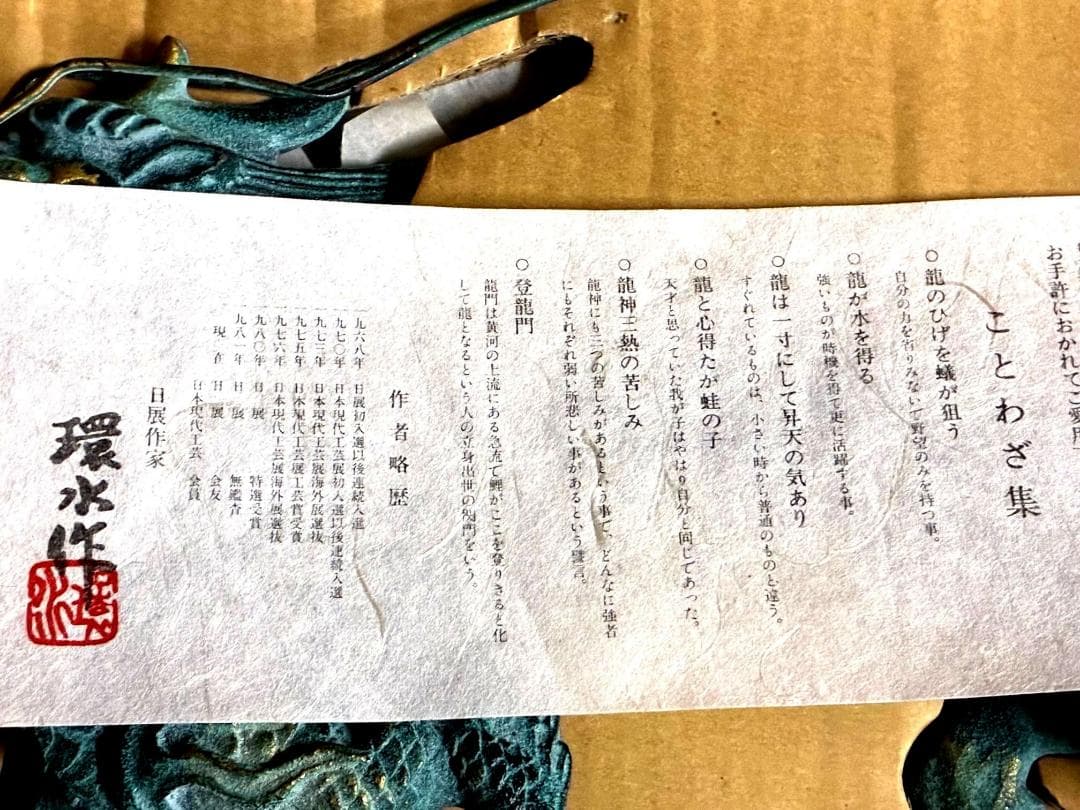 お手許におかれてご愛用
ことわざ集
○ 龍のひげを蟻が狙う
自分の力を省りみないで野望のみを持つ事。
○ 龍が水を得る
強いものが時機を得て更に活躍する事。
○ 龍は一寸にして昇天の気あり
すぐれているものは、小さい時から普通のものと違う。
○ 龍と心得たが蛙の子
天才と思っていた我が子はやはり自分と同じであった。
○ 龍神三熱の苦しみ
龍神にも三つの苦しみがあるという事で、どんなに強者
にもそれぞれ弱い所悲しい事があるという譬言。
○ 登龍門
龍門は黄河の上流にある急流で鯉がここを登りきると化
して龍となるという人の立身出世の関門をいう。
作者略歴
一九六八年 日展初入選以後連続入選
一九七〇年 日本現代工芸展初入選以後連続入選
一九七三年 日本現代工芸展海外展選抜
一九七五年 日本現代工芸展工芸賞受賞
一九七六年 日本現代工芸展海外展選抜
一九八〇年 日展 特選受賞
一九八一年 日展 無鑑査
現在 日展 会友
日本現代工芸 会員
日展作家
環水作